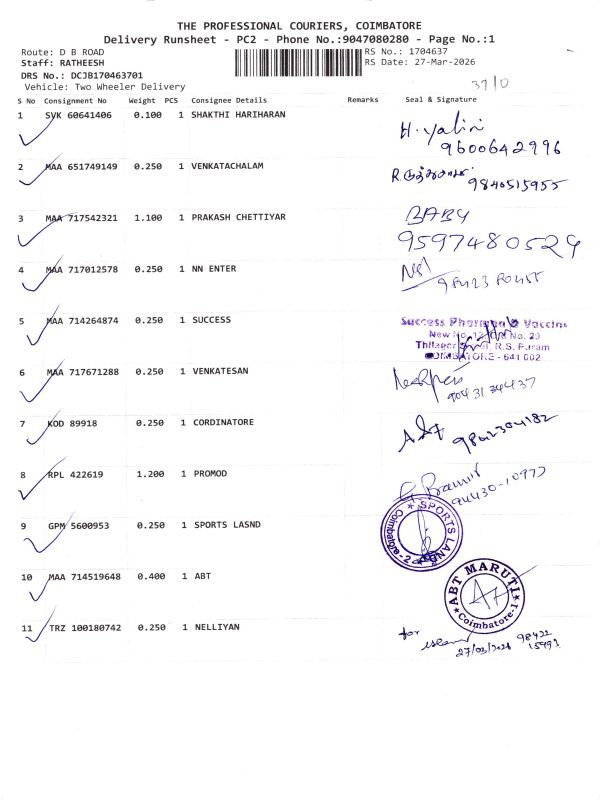 THE PROFESSIONAL COURIERS, COIMBATORE
Delivery Runsheet - PC2 - Phone No.:9047080280 - Page No.:1
Route: D B ROAD
RS No.: 1704637
Staff: RATHEESH
RS Date: 27-Mar-2026
DRS No.: DCJB170463701
Vehicle: Two Wheeler Delivery
S No Consignment No Weight PCS Consignee Details Remarks Seal & Signature
1 SVK 60641406 0.100 1 SHAKTHI HARIHARAN
H. Yalini
9600642996
2 MAA 651749149 0.250 1 VENKATACHALAM
9840515955
3 MAA 717542321 1.100 1 PRAKASH CHETTIYAR
BABY
9597480529
4 MAA 717012578 0.250 1 NN ENTER
5 MAA 714264874 0.250 1 SUCCESS
Success Pharma & Vaccine
R.S. Puram
COIMBATORE - 641 002
6 MAA 717671288 0.250 1 VENKATESAN
9043134437
7 KOD 89918 0.250 1 CORDINATORE
8 RPL 422619 1.200 1 PROMOD
94430-10973
9 GPM 5600953 0.250 1 SPORTS LASND
SPORTS LAND
Coimbatore-2
10 MAA 714519648 0.400 1 ABT
ABT MARUTI
Coimbatore-1
11 TRZ 100180742 0.250 1 NELLIYAN
for
98422
27/03/2026 15993